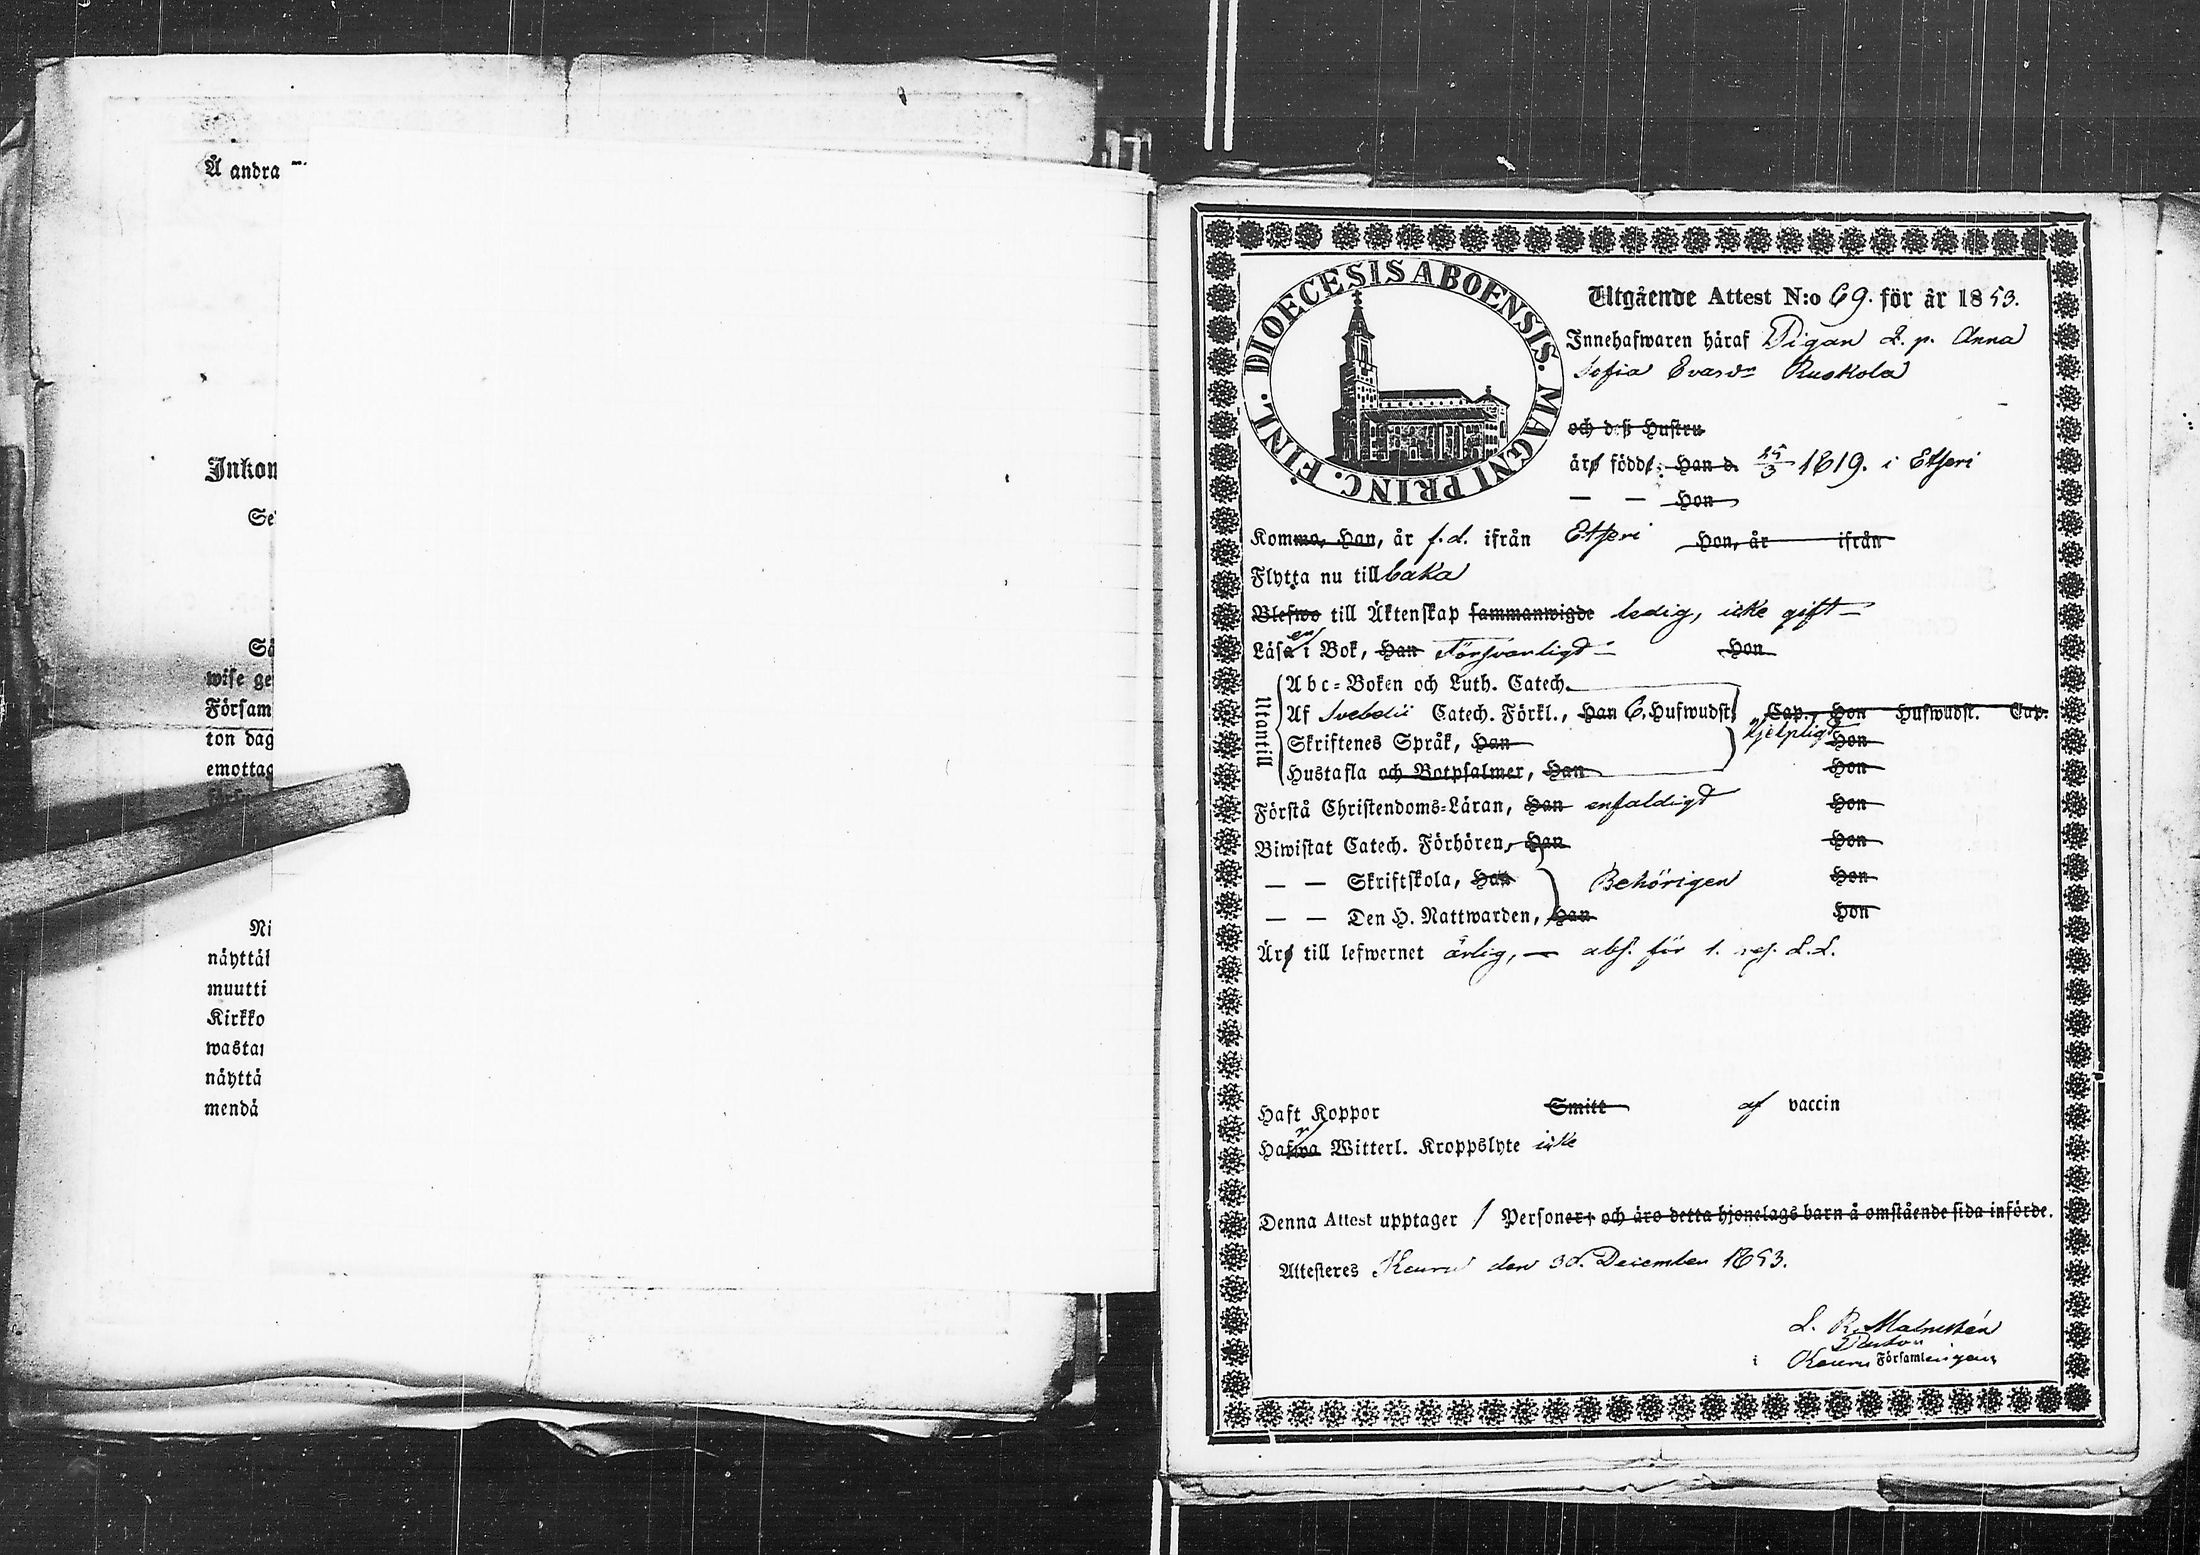 Å andra
Inkom
Se
Så
wise ge
Försam
ton dag
emottag
Ni
näyttäł
muutti
Kirkko
wastaı
näyttä
mendä
DIOECESIS ABOENSIS. MAGNI PRINC. FINL.
Utgående Attest N:o 69. för år 1853.
Innehafwaren häraf Pigan L. p. Anna
Sofia Evasdr Ruskola
och deß Hustru
äro födde: Han d. 25/3 1819. i Etseri
— — Hon
Komma, Han, år f.d. ifrån Etseri Hon, år ifrån
Flytta nu tillbaka
Blefwo till Äktenskap sammanwigde ledig, icke gift
Läsa i Bok, Han Försvarligt Hon
Utantill
Abc-Boken och Luth. Catech.
Af Svebelii Catech. Förkl., Han 6. Hufwudst. Cap., Hon Hufwudst. Cap.
Skriftenes Språk, Han hjelpligt Hon
Hustafla och Botpsalmer, Han Hon
Förstå Christendoms-Läran, Han enfaldigt Hon
Biwistat Catech. Förhören, Han Hon
— — Skriftskola, Han Behörigen Hon
— — Den H. Nattwarden, Han Hon
Äro till lefwernet ärlig, — abs. för 1. resp. L.L.
Haft Koppor Smitt af vaccin
Hafwa Witterl. Kroppslyte icke
Denna Attest upptager 1 Personer; och äro detta hjonelags barn å omstående sida införde.
Attesteres Keuru den 30. December 1853.
L. R. Malmstén
Pastor
i Keuru Församlingen